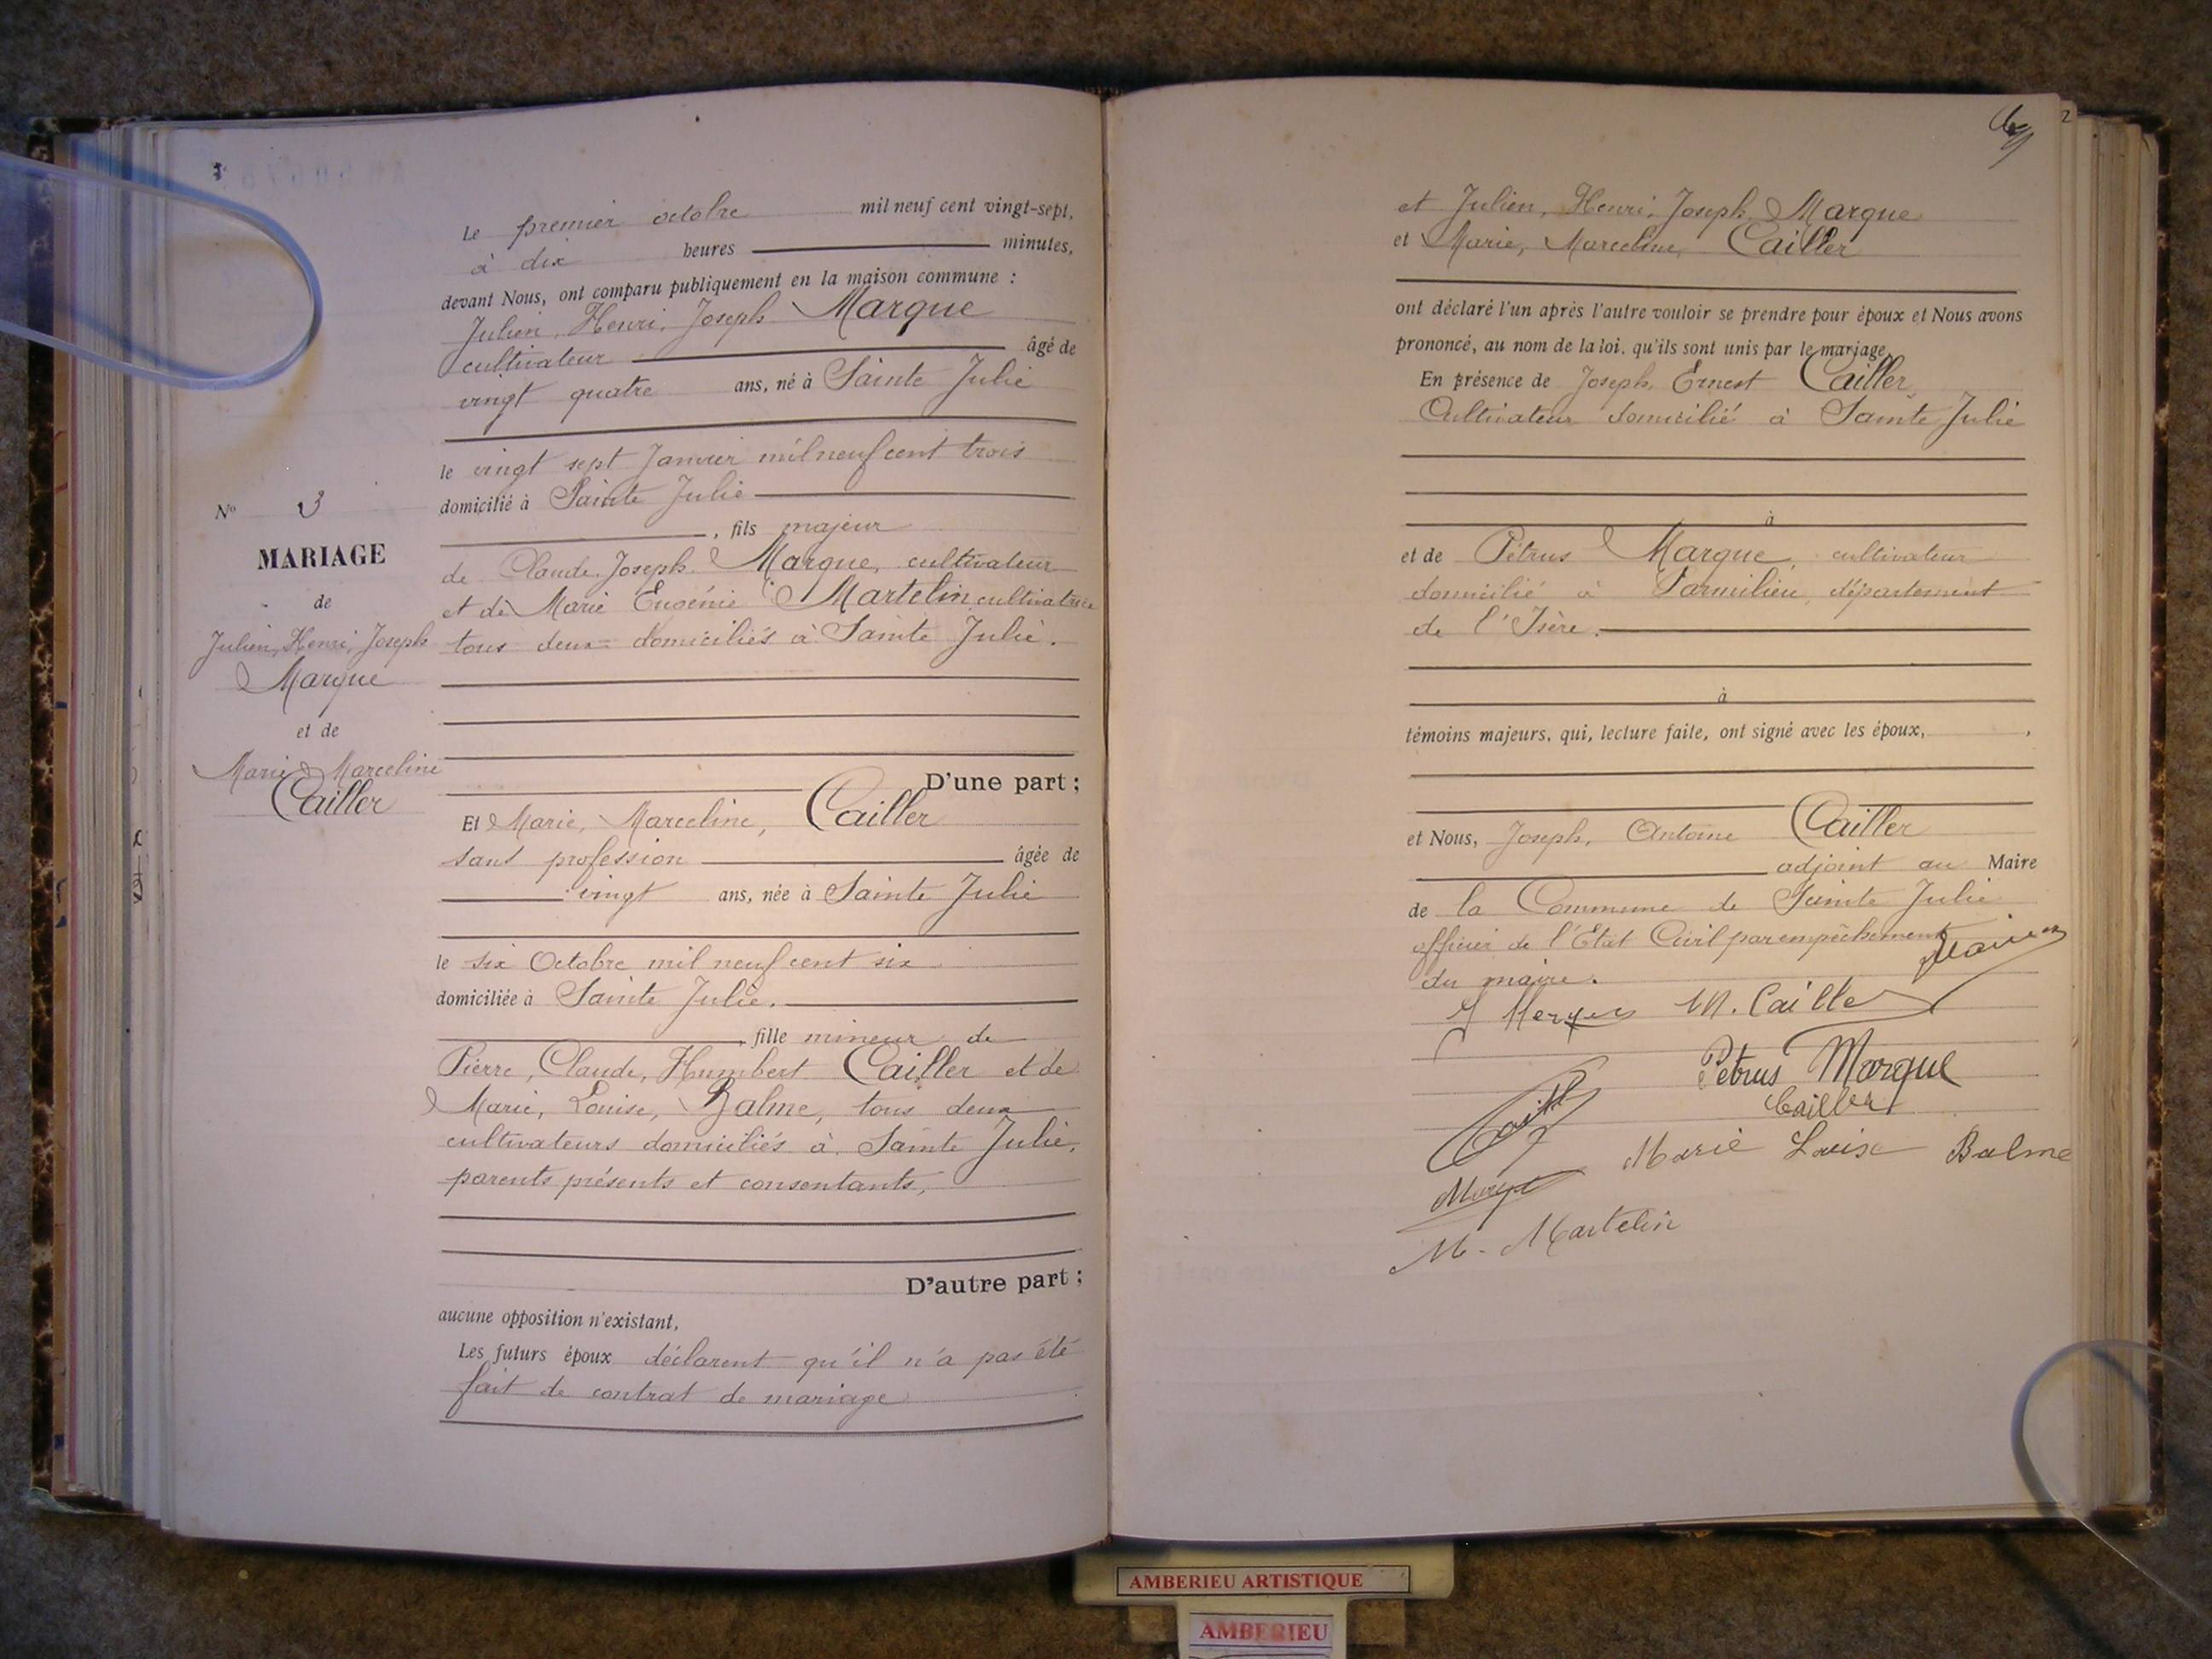 Le premier octobre mil neuf cent vingt-sept,
à dix heures minutes,
devant Nous, ont comparu publiquement en la maison commune :
Julien, Henri, Joseph Margue
cultivateur âgé de
vingt quatre ans, né à Sainte Julie
le vingt sept Janvier mil neuf cent trois
domicilié à Sainte Julie
, fils majeur
de Claude, Joseph Margue, cultivateur
et de Marie Eugénie Martelin cultivatrice
tous deux domiciliés à Sainte Julie.
D'une part ;
Et Marie, Marceline, Cailler
sans profession âgée de
vingt ans, née à Sainte Julie
le six Octobre mil neuf cent six
domiciliée à Sainte Julie.
, fille mineur de
Pierre, Claude, Humbert Cailler et de
Marie, Louise, Balme, tous deux
cultivateurs domiciliés à Sainte Julie,
parents présents et consentants,
D'autre part ;
aucune opposition n'existant,
Les futurs époux déclarent qu'il n'a pas été
fait de contrat de mariage
No 3
MARIAGE
de
Julien, Henri, Joseph
Margue
et de
Marie Marceline
Cailler
2
et Julien, Henri, Joseph, Margue
et Marie, Marceline, Cailler
ont déclaré l'un après l'autre vouloir se prendre pour époux et Nous avons
prononcé, au nom de la loi, qu'ils sont unis par le mariage.
En présence de Joseph, Ernest Cailler,
Cultivateur domicilié à Sainte Julie
à
et de Pétrus Margue, cultivateur
domicilié à Parmilieu, département
de l'Isère.
à
témoins majeurs, qui, lecture faite, ont signé avec les époux, ,
et Nous, Joseph, Antoine Cailler
adjoint au Maire
de la Commune de Sainte Julie
officier de l'Etat Civil par empêchement
du maire.
M. Cailler
Petrus Margue
Cailler
Marie Louise Balme
Margue
M. Martelin
AMBERIEU ARTISTIQUE
AMBERIEU